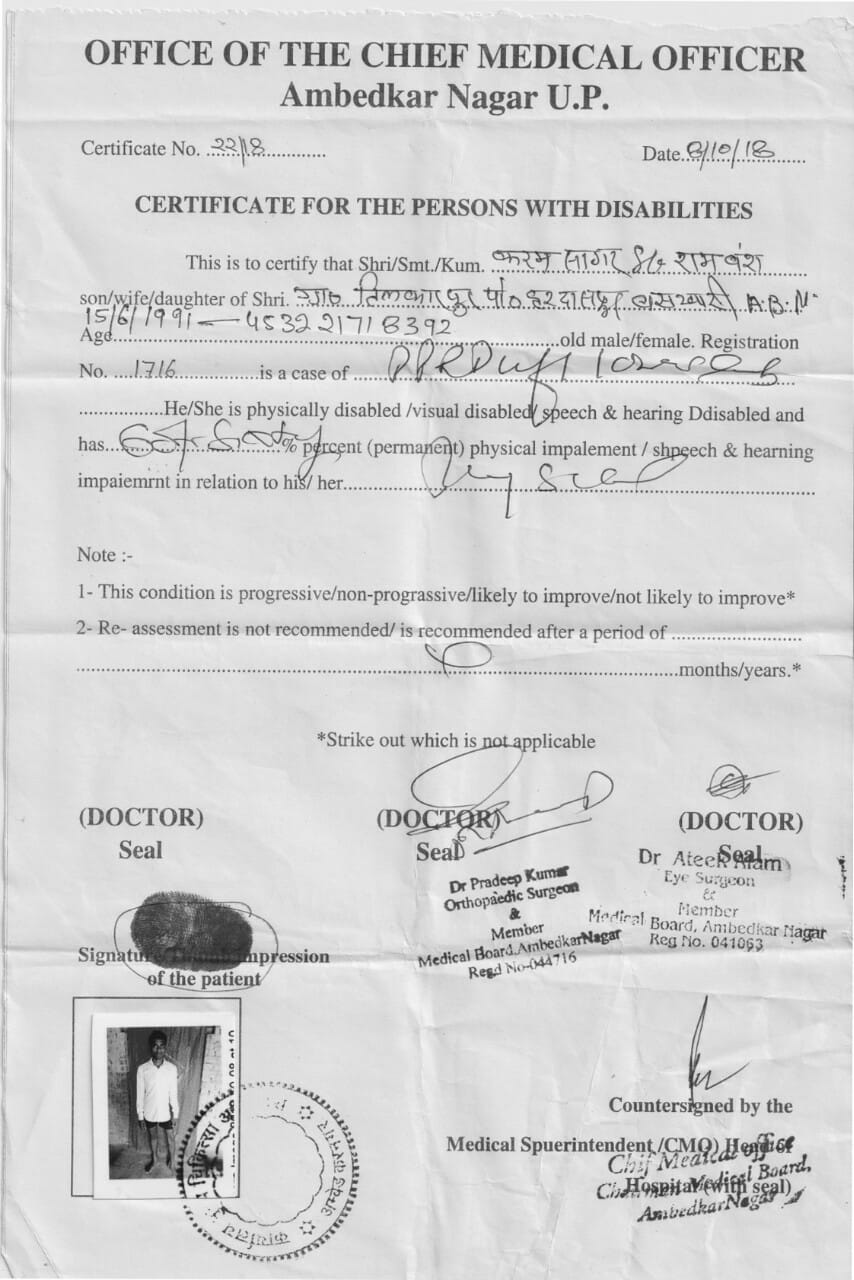 OFFICE OF THE CHIEF MEDICAL OFFICER
Ambedkar Nagar U.P.
Certificate No. 22/18
Date 8/10/18
CERTIFICATE FOR THE PERSONS WITH DISABILITIES
This is to certify that Shri/Smt./Kum. करम सागर S/o रामबंश
son/wife/daughter of Shri. A.B.N.
15/6/1991 — 4532 2171 8392
Age old male/female. Registration
No. 1716 is a case of
He/She is physically disabled /visual disabled/ speech & hearing Ddisabled and
has % percent (permanent) physical impalement / shpeech & hearning
impaiemrnt in relation to his/ her
Note :-
1- This condition is progressive/non-prograssive/likely to improve/not likely to improve*
2- Re- assessment is not recommended/ is recommended after a period of
months/years.*
*Strike out which is not applicable
(DOCTOR) (DOCTOR) (DOCTOR)
Seal Seal Seal
Dr Pradeep Kumar
Orthopaedic Surgeon
&
Member
Medical Board.AmbedkarNagar
Regd No-044716
Dr Ateek Alam
Eye Surgeon
&
Member
Medical Board, Ambedkar Nagar
Reg No. 041063
Signature/Thumb Impression
of the patient
Countersigned by the
Medical Spuerintendent /CMO) Head of
Hospital (with seal)
Chif Medical office
Chairman Medical Board,
AmbedkarNagar